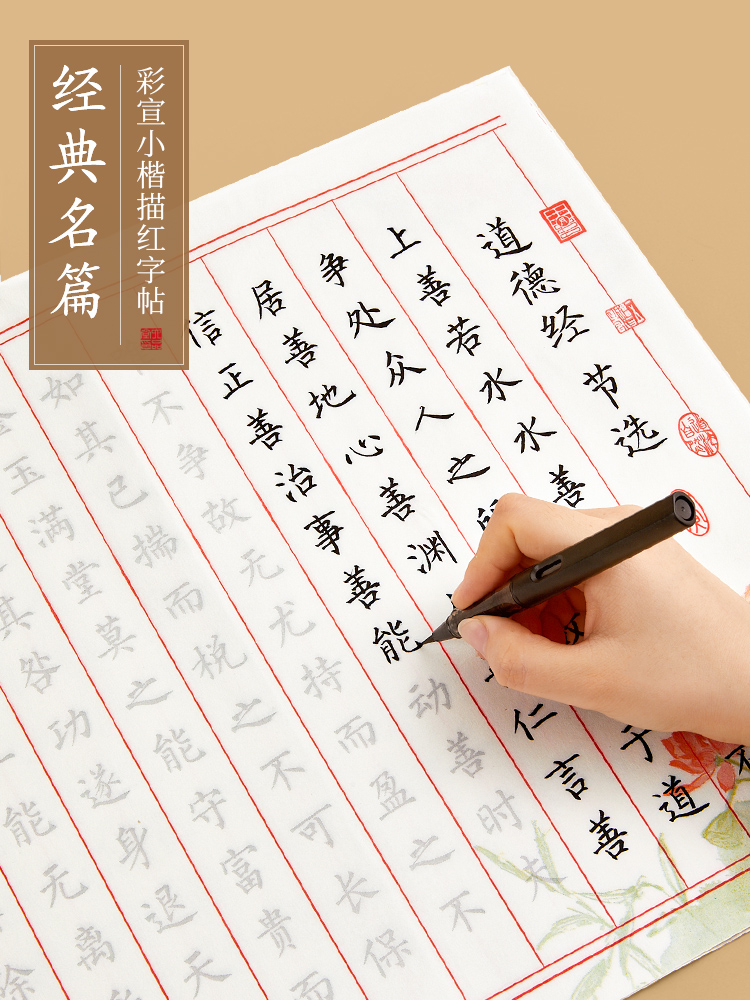 经典名篇
彩宣小楷描红字帖
道德经节选
上善若水水善不
争处众人之于道
居善地心善渊仁言善
信正善治事善能动善时夫
不争故无尤持而盈之不
如其已揣而棁之不可长保
金玉满堂莫之能守富贵而
其咎功遂身退天
能无离
除